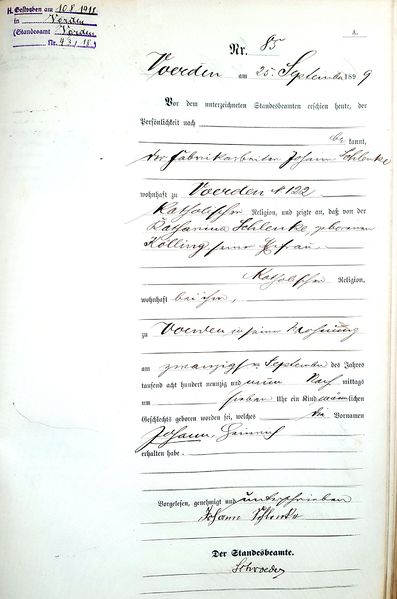 H. Gestorben am 10.8.1918
in Vörden
(Standesamt Vörden
Nr. 43/18)
A.
Nr. 85
Voerden am 25. September 1899
Vor dem unterzeichneten Standesbeamten erschien heute, der
Persönlichkeit nach
be kannt,
der Fabrikarbeiter Johann Schlenke
wohnhaft zu Voerden N 122
katholischer Religion, und zeigte an, daß von der
Katharina Schlenke, geborenen
Kölling seiner Ehefrau
katholischer Religion,
wohnhaft bei ihm,
zu Voerden in seiner Wohnung
am zwanzigsten September des Jahres
tausend acht hundert neunzig und neun Nach mittags
um sieben Uhr ein Kind männlichen
Geschlechts geboren worden sei, welches die Vornamen
Johann Heinrich
erhalten habe.
Vorgelesen, genehmigt und unterschrieben
Johann Schlenke
Der Standesbeamte.
Schroeder